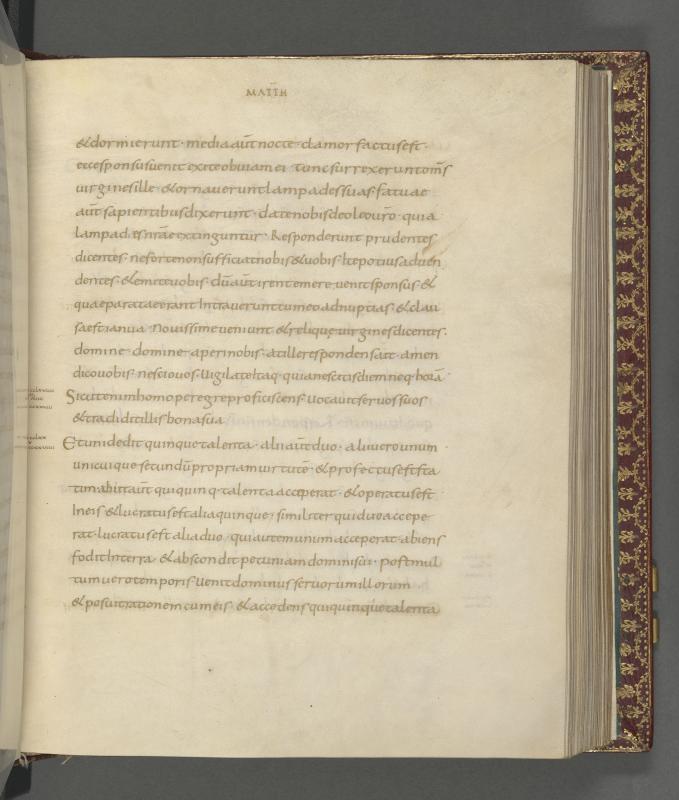 MATTH
& dormierunt · media aūt nocte clamor factus est ·
ecce sponsus uenit exite obuiam ei · Tunc surrexerunt om̄s
uirgines ille · & ornauerunt lampades suas · Fatuae
aūt sapientibus dixerunt · date nobis de oleo ur̄o · quia
lampades nr̄ae extinguntur · Responderunt prudentes
dicentes · ne forte non sufficiat nobis & uobis · Ite potius ad uen
dentes · & emite uobis · dū aūt irent emere · uenit sponsus · &
quae paratae erant Intrauerunt cum eo ad nuptias · & clau
sa est ianua · Nouissime ueniunt & relique uirgines dicentes ·
domine · domine · aperi nobis · at ille respondens ait · amen
dico uobis · nescio uos · Uigilate Itaq· quia nescitis diem neq· horā
Sicut enim homo peregre proficiscens · uocauit seruos suos
& tradidit illis bona sua
Et uni dedit quinque talenta · alii aūt duo · alii uero unum
unicuique secundū propriam uirtutē · & profectus est sta
tim · abiit aūt qui quinq· talenta acceperat · & operatus est
In eis · & lucratus est alia quinque · similiter qui duo accepe
rat · lucratus est alia duo · qui autem unum acceperat · abiens
fodit In terra · & abscondit pecuniam domini sui · Post mul
tum uero temporis · uenit dominus seruorum illorum
& posuit rationem cum eis · & accedens qui quinque talenta